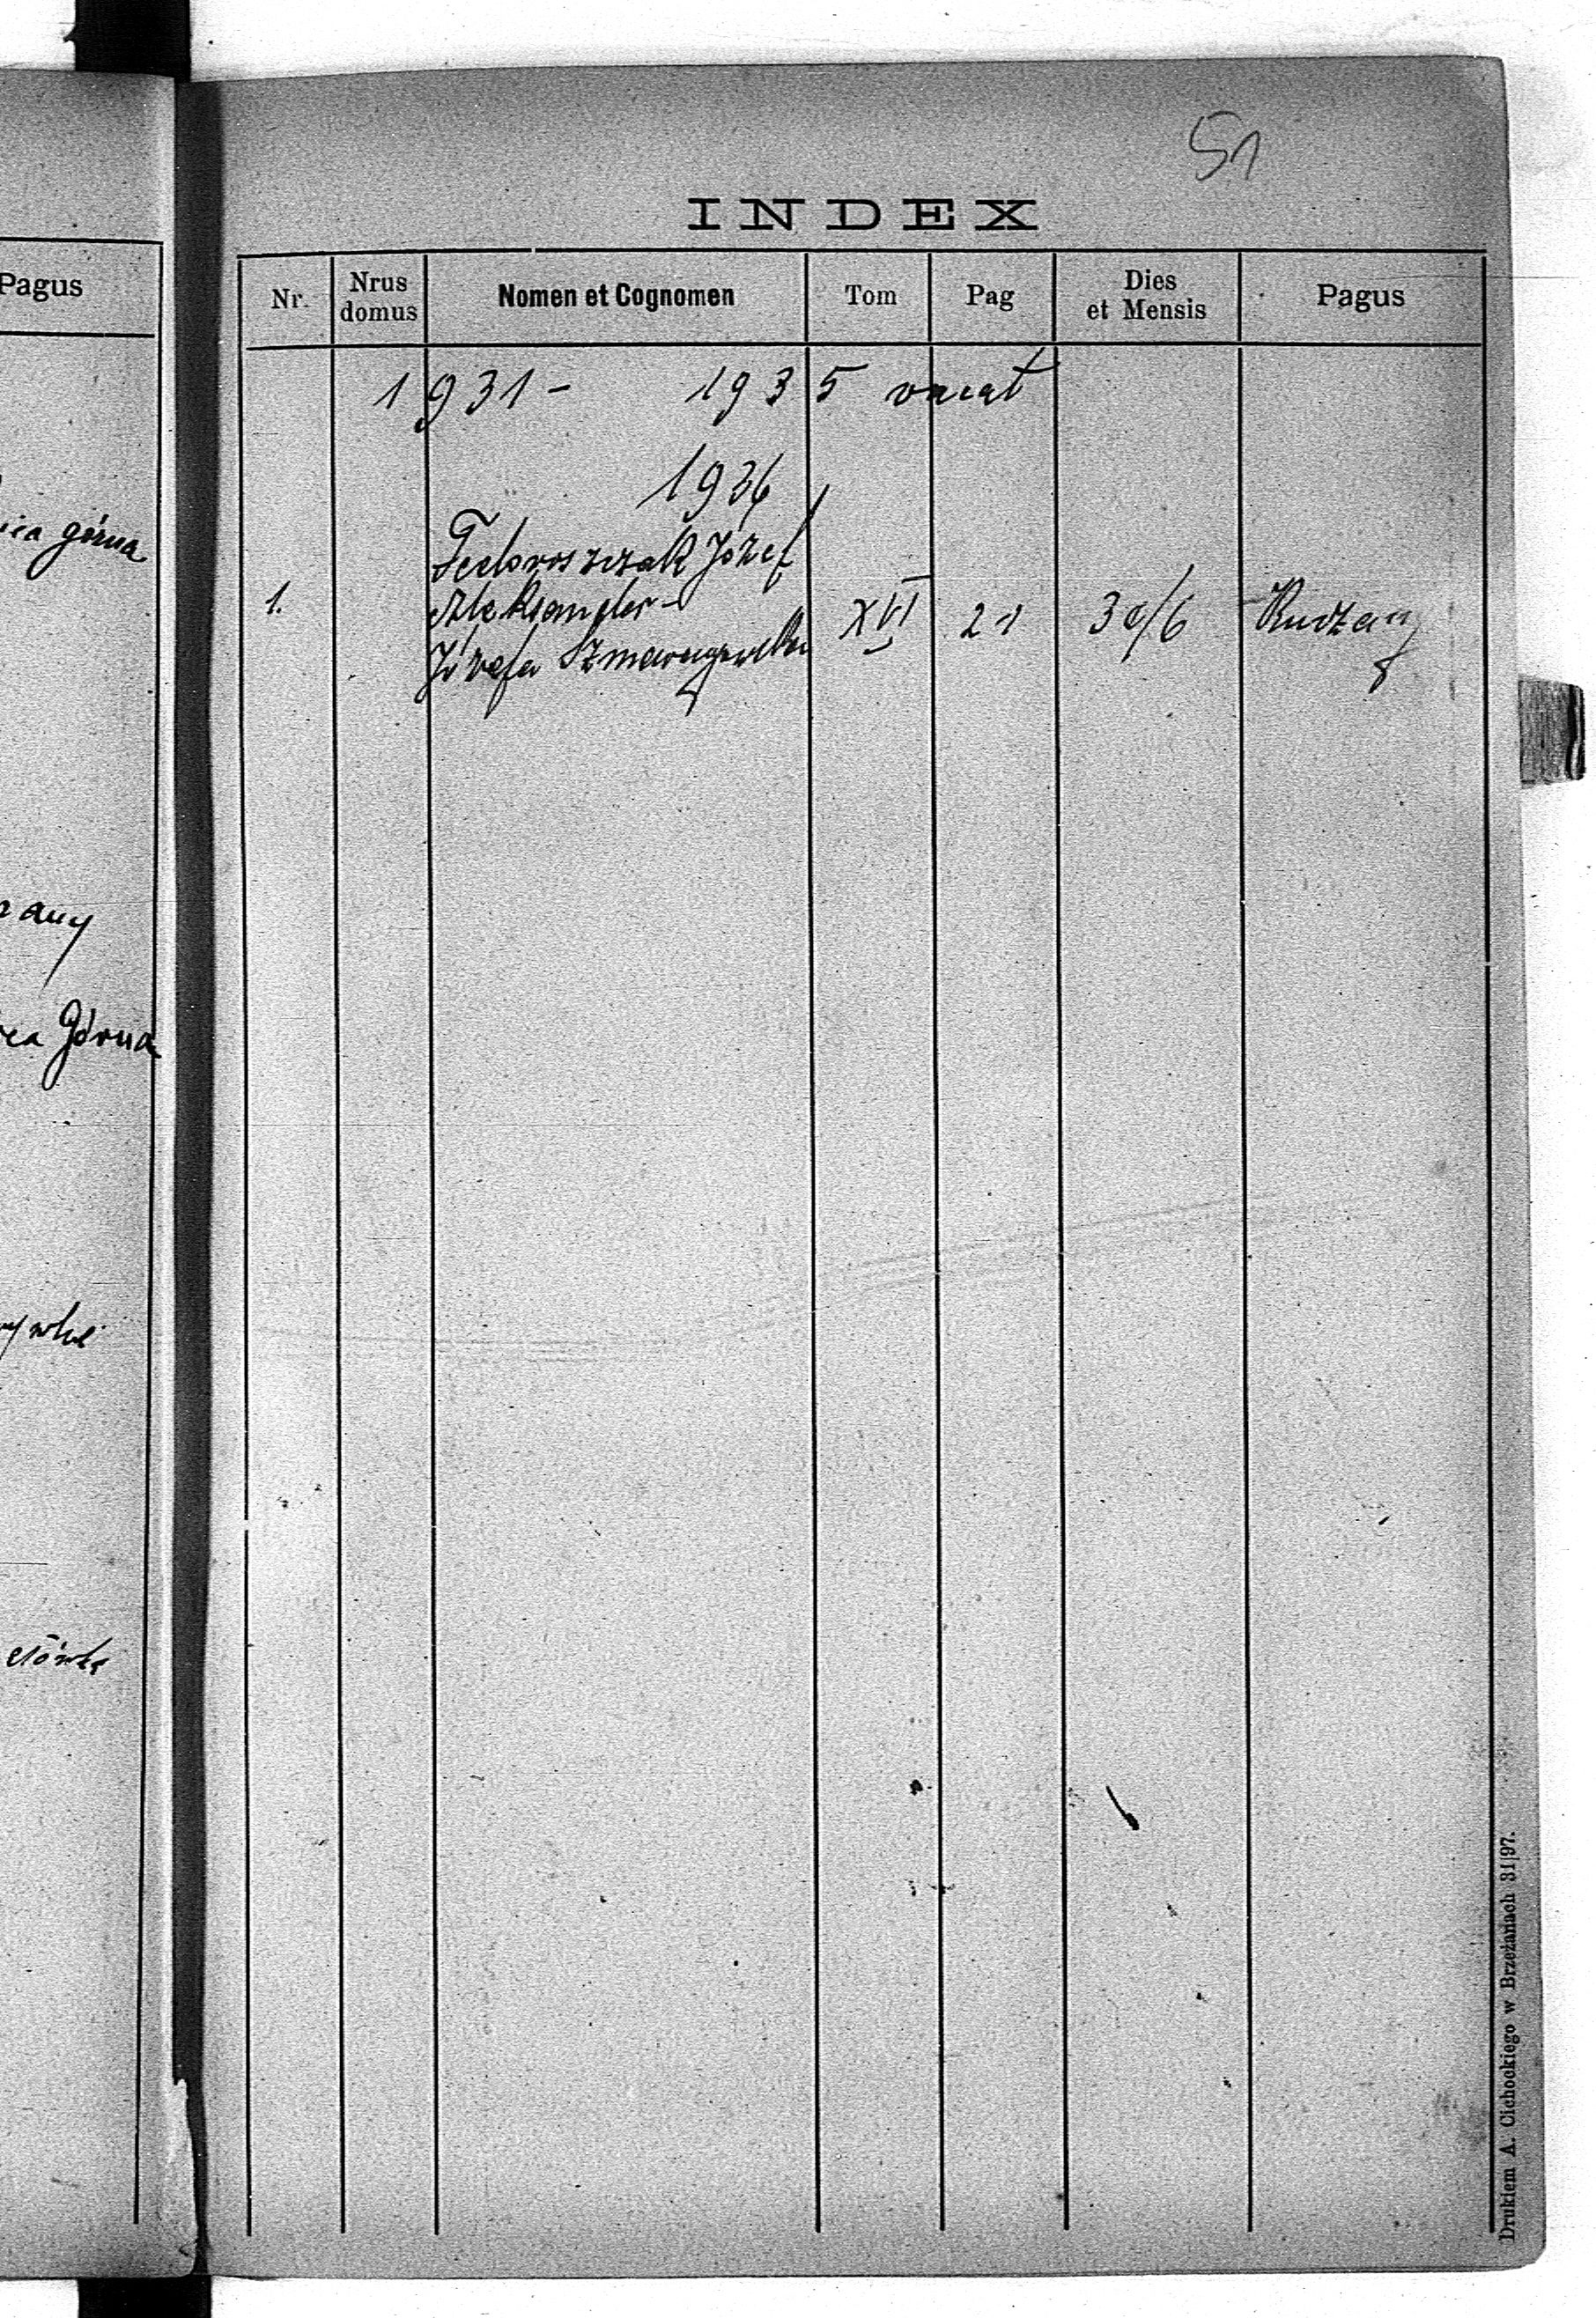 Pagus
górna
Górna
51
INDEX
Nr.
Nrus domus
Nomen et Cognomen
Tom
Pag
Dies et Mensis
Pagus
1931 - 1935 vacat
1936
Fedoroszczak Józef
1. Aleksander - XVI 21 30/6
Józefa
Drukiem A. Cichockiego w Brzeżanach 31|97.